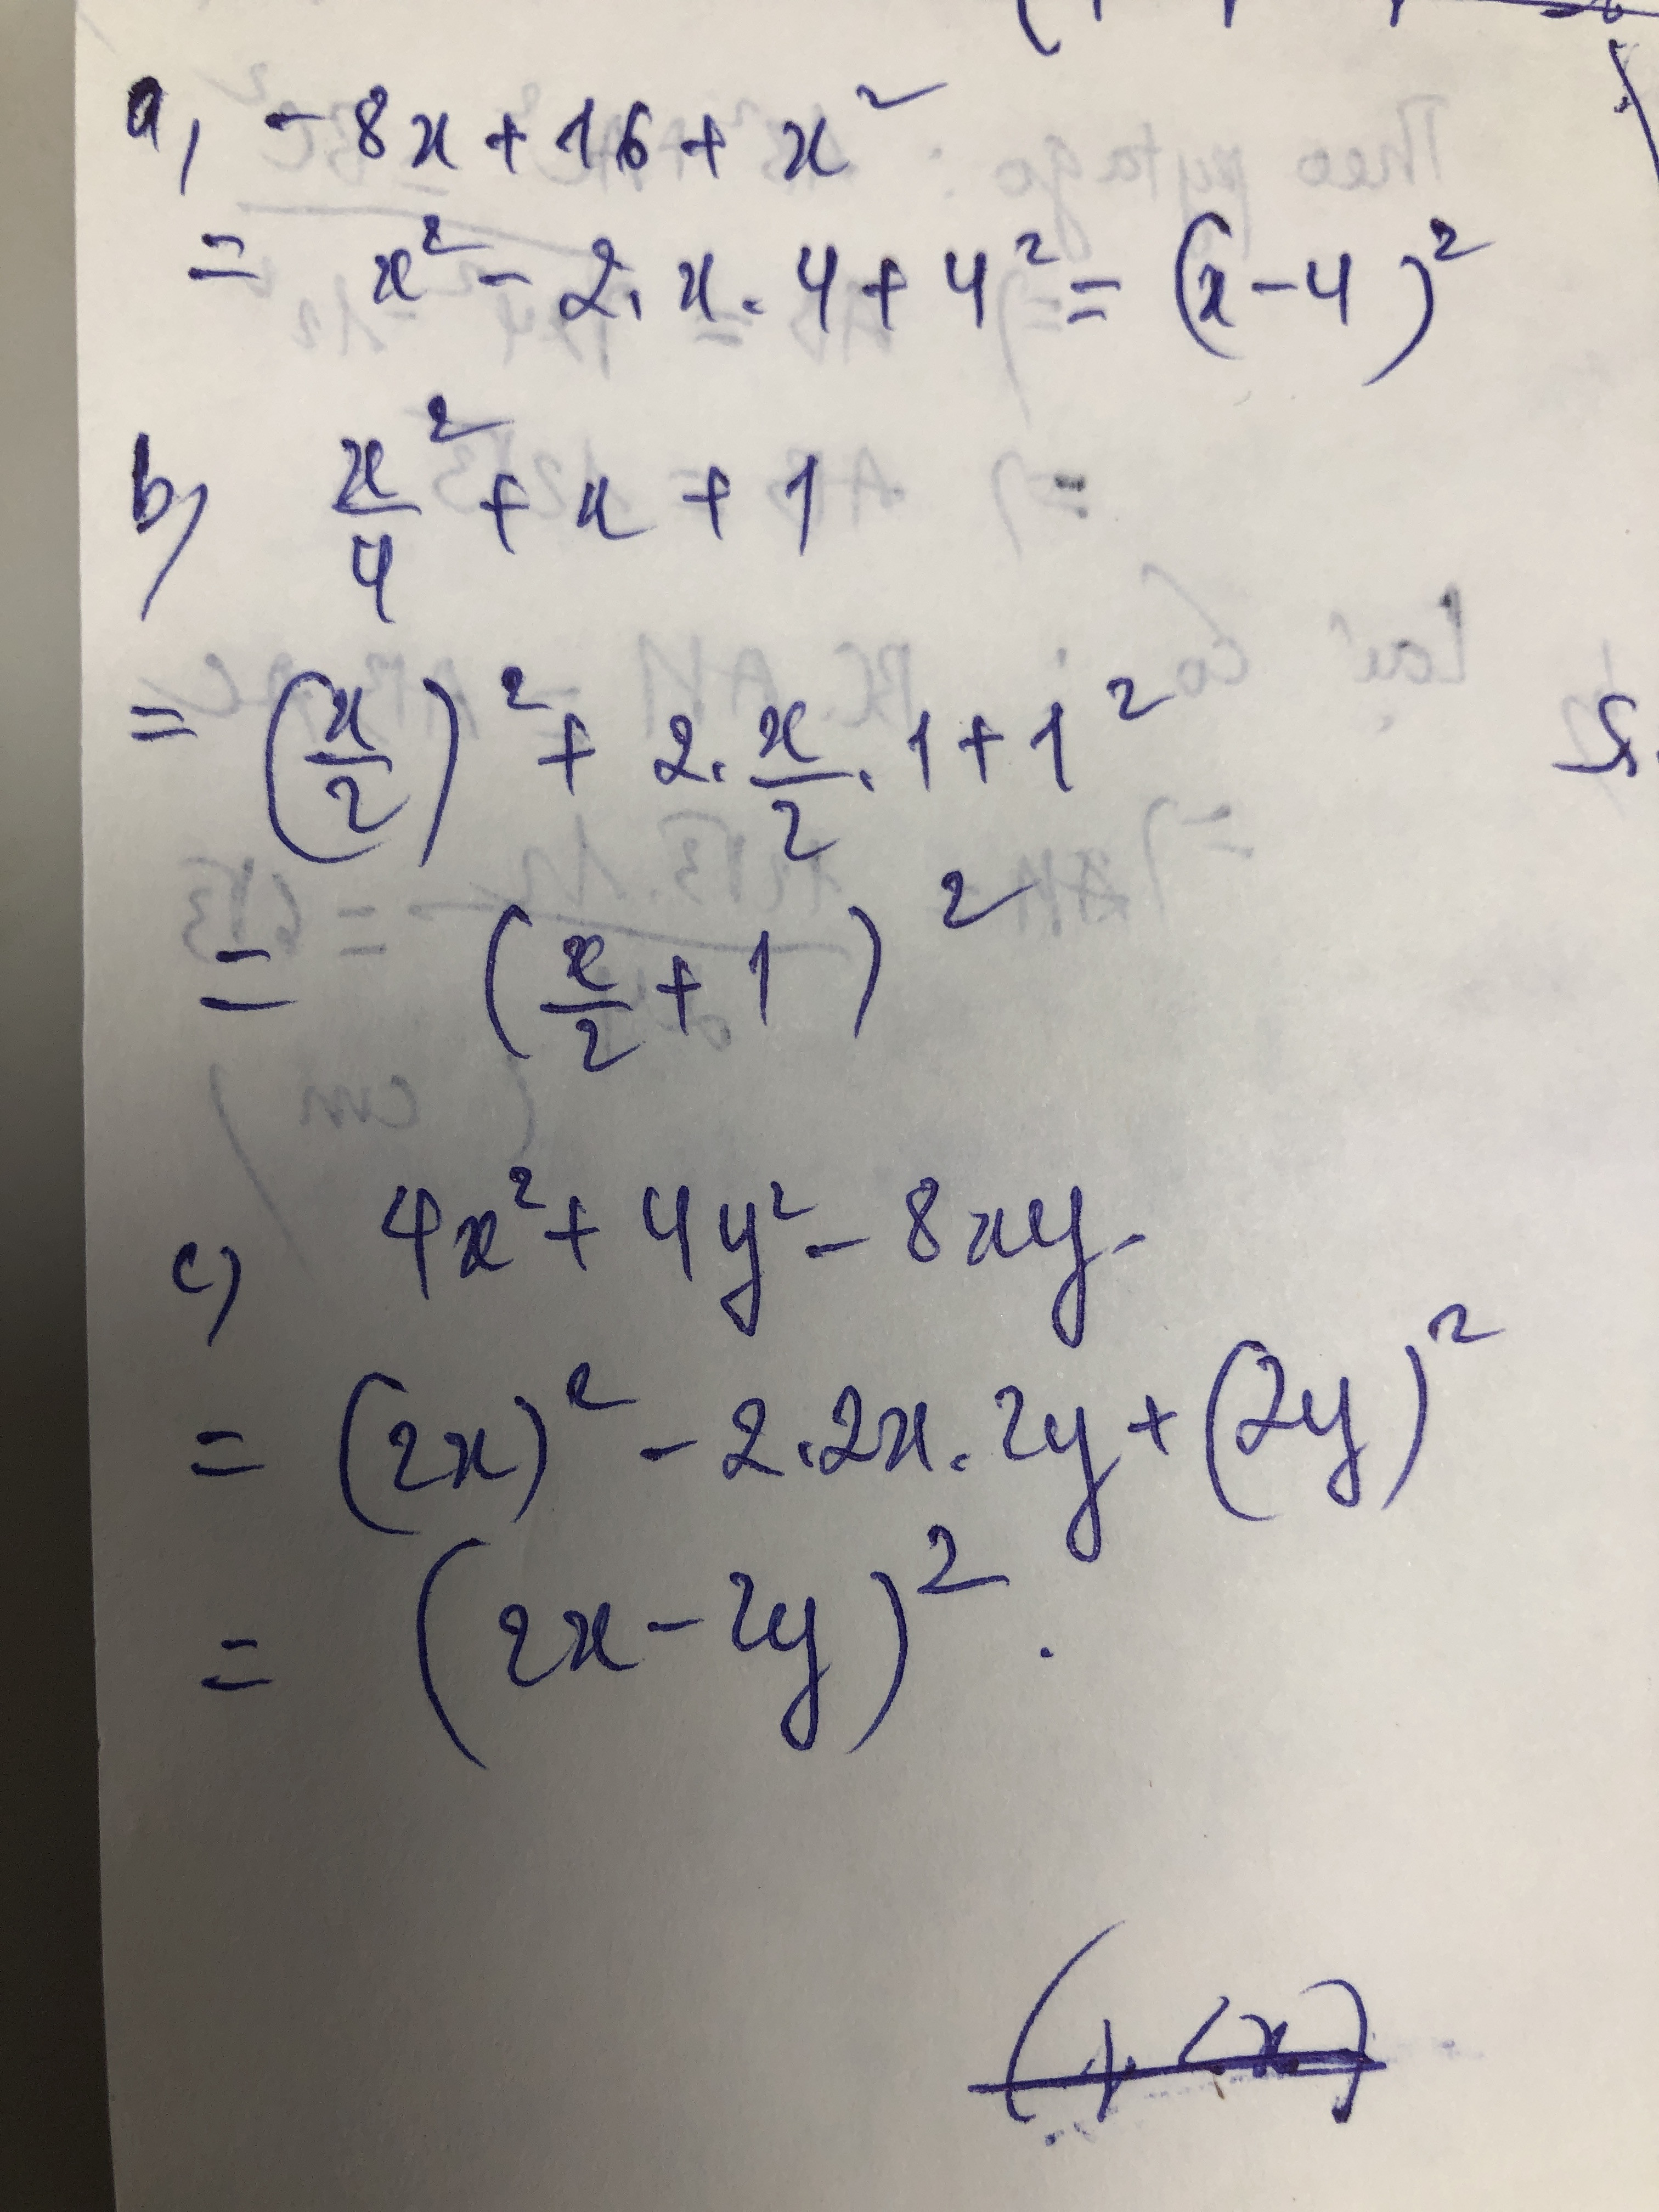 a, - 8x + 16 + x²
= x² - 2.x.4 + 4² = (x-4)²
b, x²/4 + x + 1
= (x/2)² + 2.x/2.1 + 1²
= (x/2 + 1)²
c, 4x² + 4y² - 8xy.
= (2x)² - 2.2x.2y + (2y)²
= (2x - 2y)².